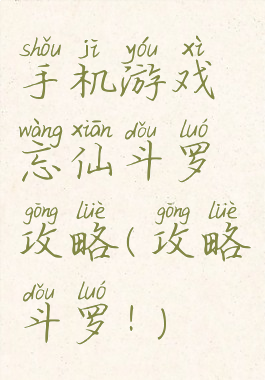 shǒu jī yóu xì
手机游戏
wàng xiān dǒu luó
忘仙斗罗
gōng lüè gōng lüè
攻略(攻略
dǒu luó
斗罗!)